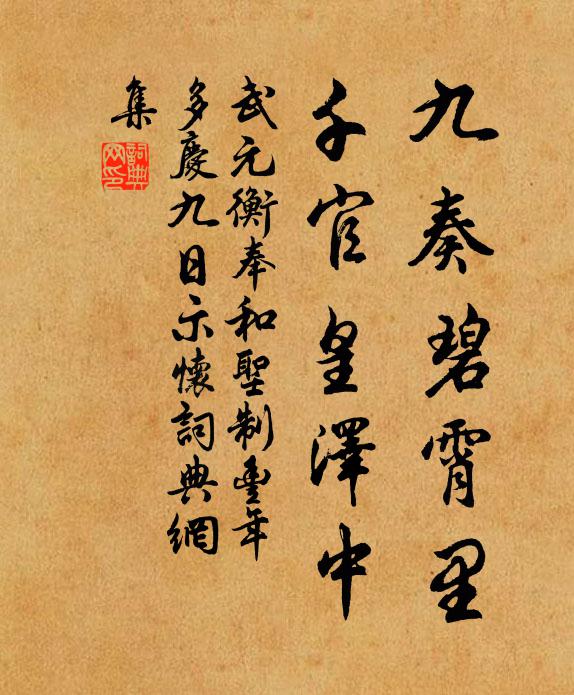 九奏碧霄里
千官皇澤中
武元衡奉和聖制豐年
多慶九日示懷詞典網
集
詞典
网印